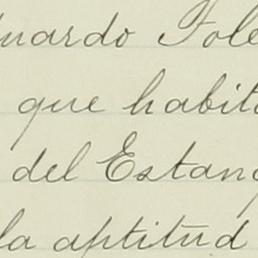 nuardo Tole
que habita
del Estang
la aptitud